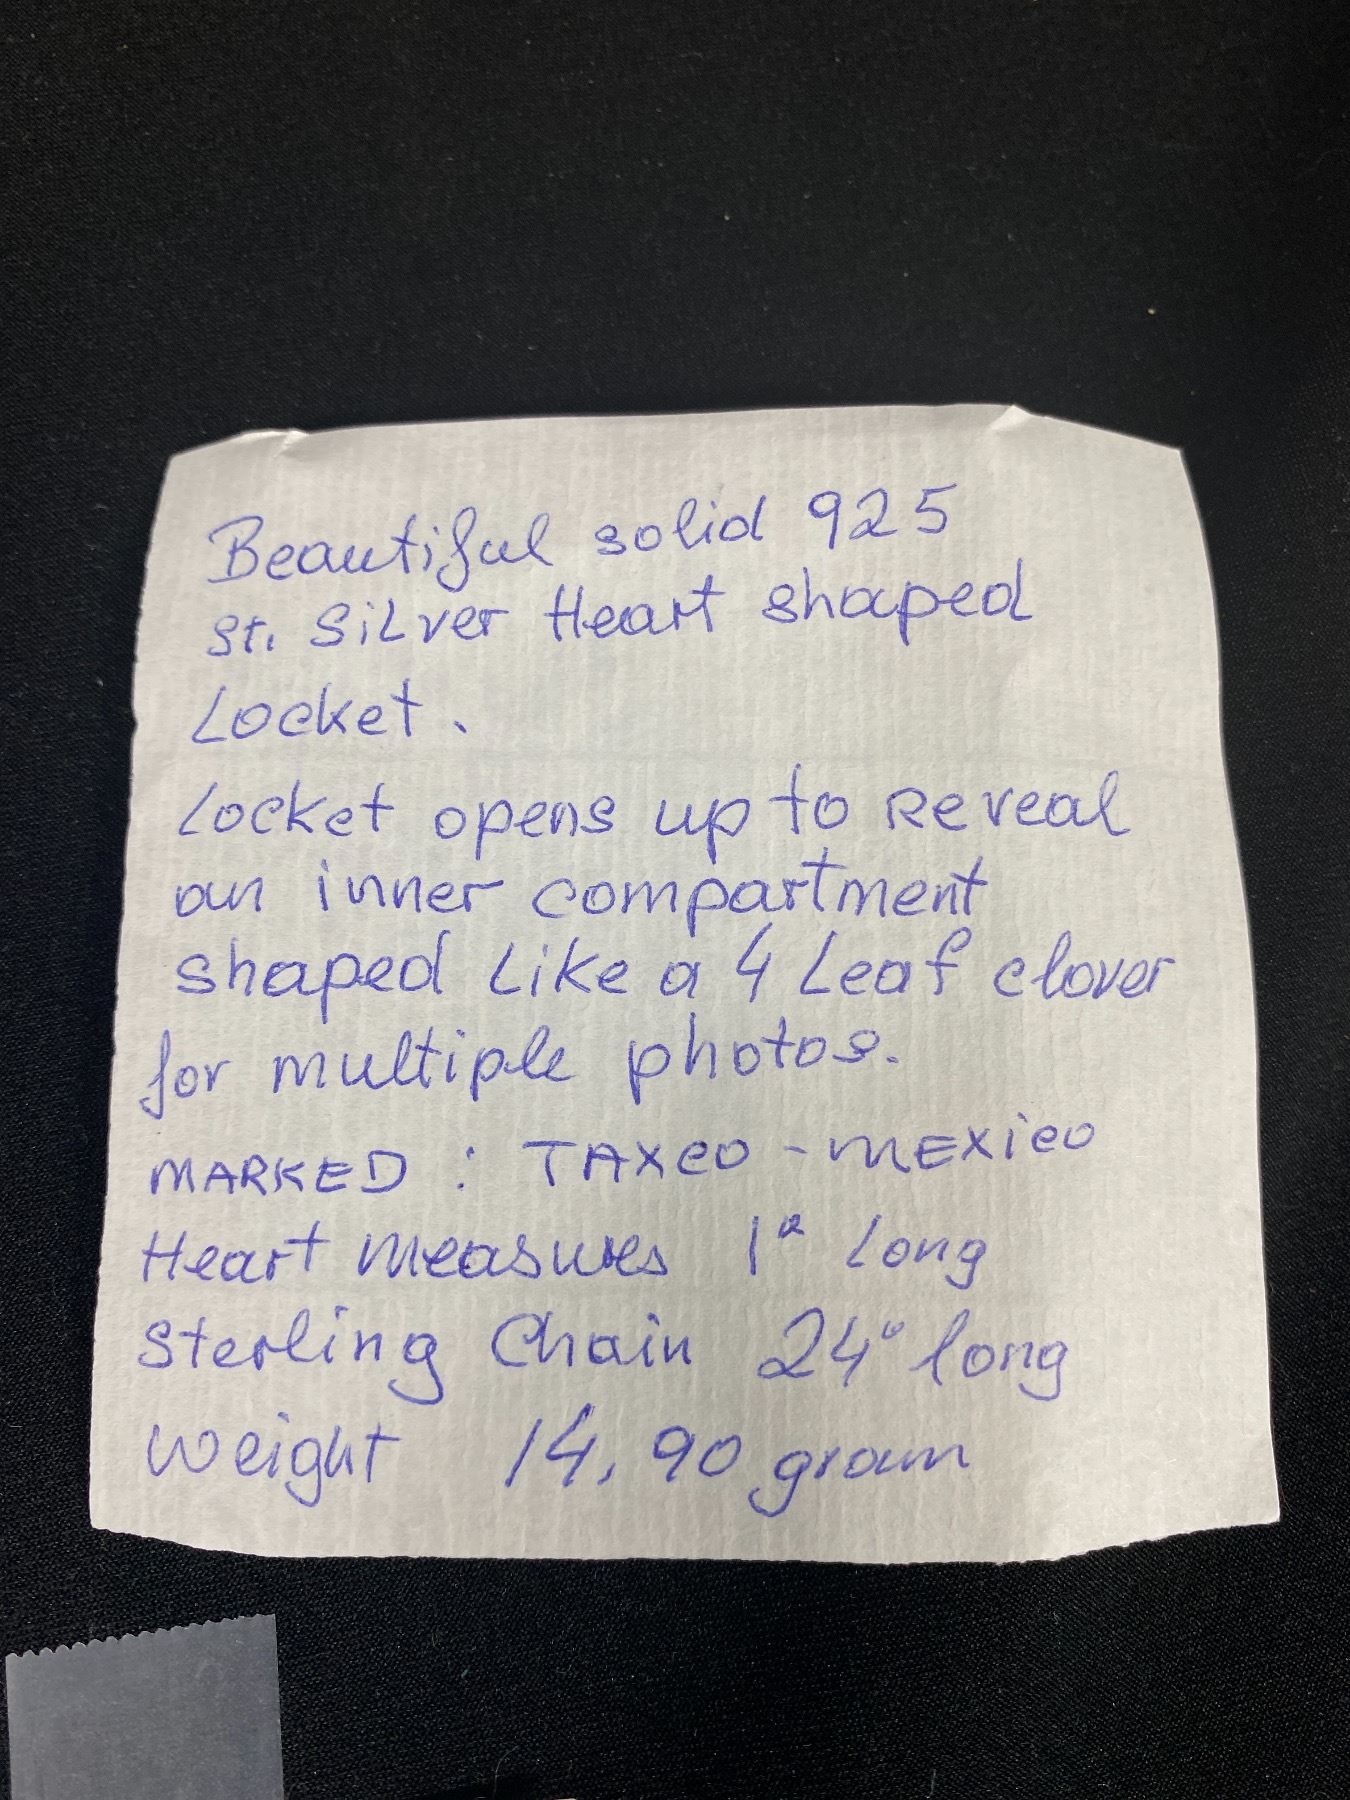 Beautiful solid 925
St. Silver Heart shaped
Locket.
Locket opens up to Reveal
an inner compartment
shaped Like a 4 Leaf clover
for multiple photos.
MARKED : TAXCO - MEXICO
Heart Measures 1" Long
Sterling Chain 24" long
Weight 14,90 gram